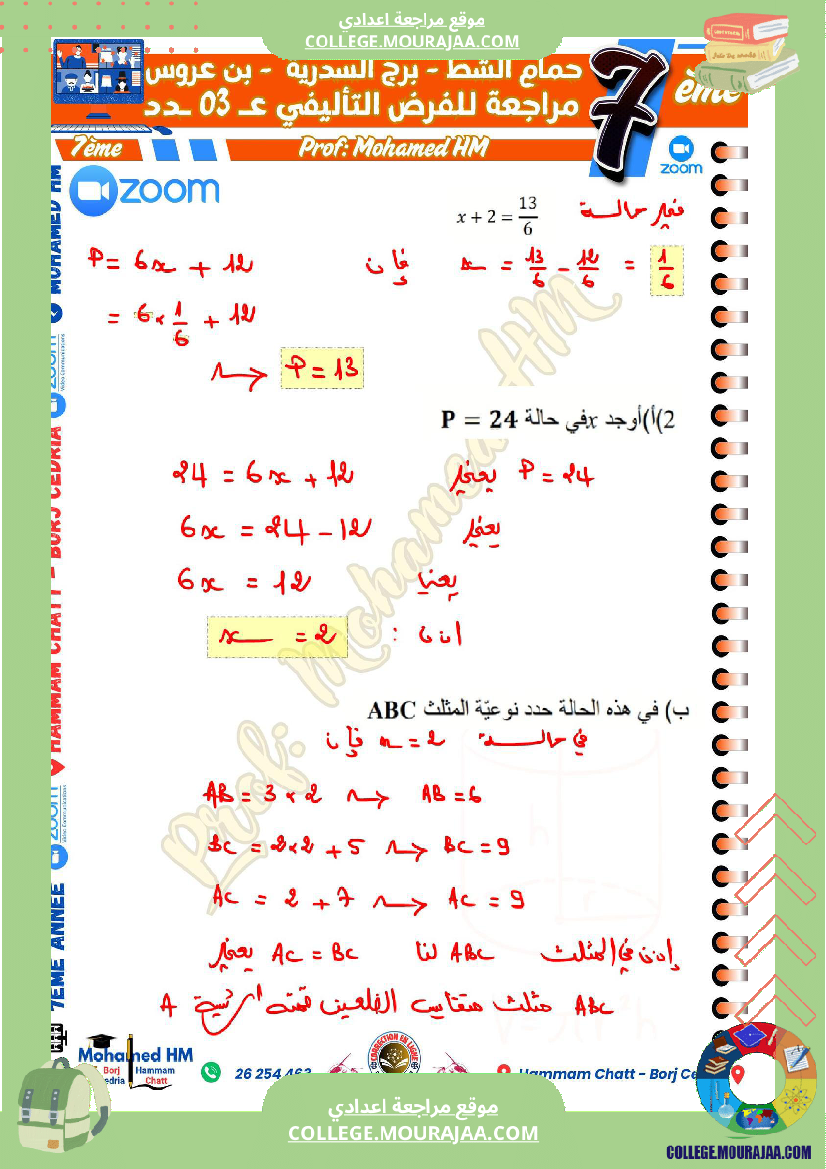 موقع مراجعة اعدادي
COLLEGE.MOURAJAA.COM
حمام الشط - برج السدرية - بن عروس
مراجعة للفرض التأليفي عـ 03 ـدد
7ème
7ème
Prof: Mohamed HM
zoom
zoom
في حالة x + 2 = 13/6
P = 6x + 12 فإن x = 13/6 - 12/6 = 1/6
= 6 × 1/6 + 12
P = 13
2)أ)أوجد x في حالة P = 24
24 = 6x + 12 يعني P = 24
6x = 24 - 12 يعني
6x = 12 يعني
x = 2 : اذن
ب) في هذه الحالة حدد نوعيّة المثلث ABC
في حالة x = 2 فإن
AB = 3 × 2 → AB = 6
BC = 2×2 + 5 → BC = 9
AC = 2 + 7 → AC = 9
إذن في المثلث ABC لنا AC = BC يعني
ABC مثلث متقايس الضلعين قمته الرئيسية A
Prof: Mohamed HM
7EME ANNEE
HAMMAM CHATT - BORJ CEDRIA
zoom
MOHAMED HM
Mohamed HM
Borj
Hammam
Chatt
26 254 463
CORRECTION EN LIGNE
Hammam Chatt - Borj Ce
موقع مراجعة اعدادي
COLLEGE.MOURAJAA.COM
COLLEGE.MOURAJAA.COM